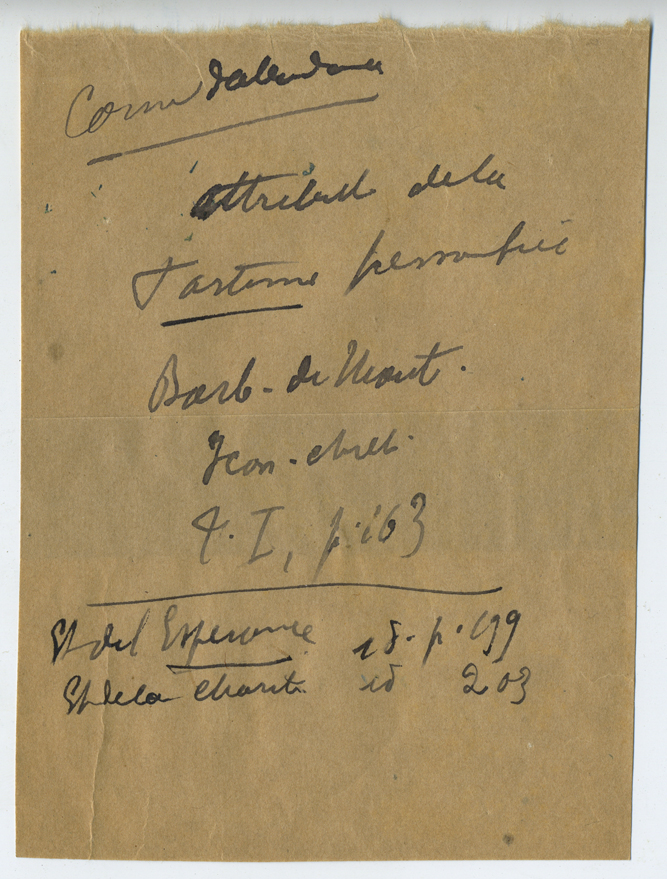 Corne d'abondance
attribut de la
Fortune personnifiée
Barb. de Mont.
Icon. chret.
t. I, p. 163
Et de l'Esperance id. p. 199
Et de la Charité id 203